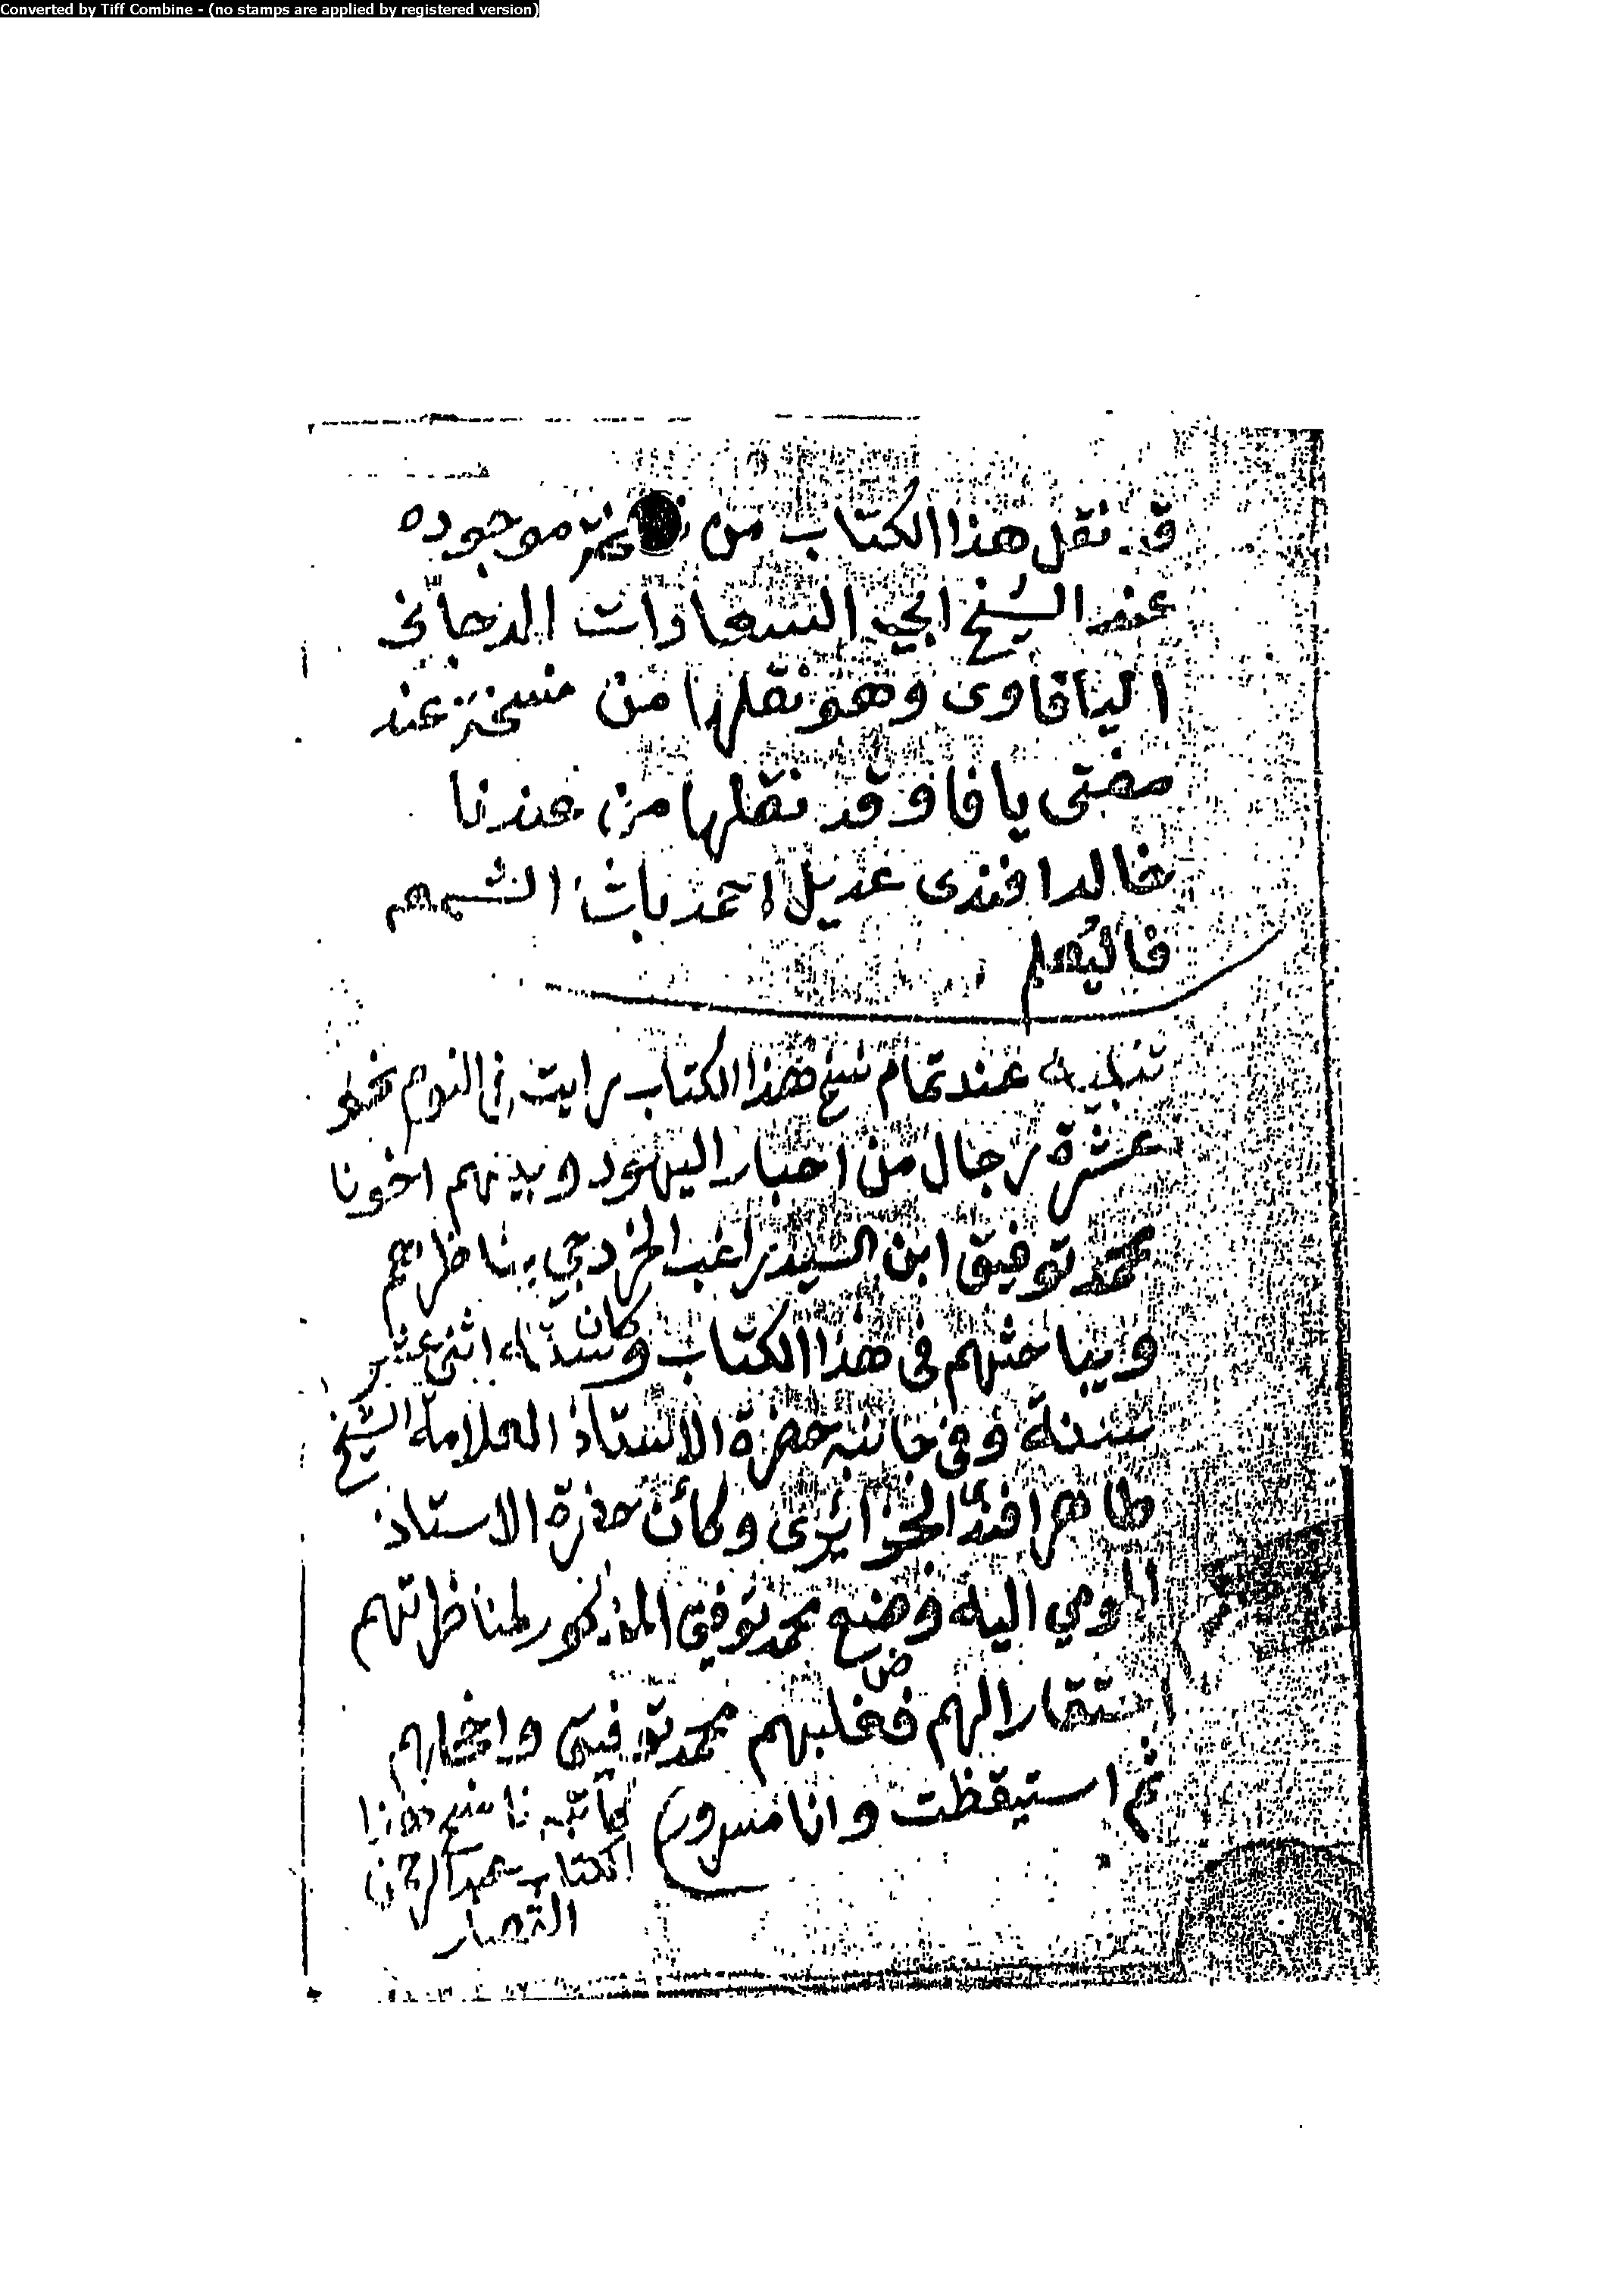 Converted by Tiff Combine - (no stamps are applied by registered version)
قد نقل هذا الكتاب من نسخة موجوده
عند الشيخ ابي السعادات الدجاني
اليافاوى وهو نقلها من نسخة عند
مفتى يافا وقد نقلها من عندنا
خالد افندى عديل احمد باشا الشمعه
فاليعلم
تنبيه عند تمام نسخ هذا الكتاب رايت في النوم نحو
عشرة رجال من احبار اليهود وبينهم اخونا
محمد توفيق ابن السيد راغب يناظرهم
ويباحثهم فى هذا الكتاب وكان سنه اثنى عشر
سنة وفى جانبه حضرة الاستاذ العلامة الشيخ
طاهر افندى الجزائرى وكأن حضرة الاستاذ
المومي اليه وضع محمد توفيق المذكور لمناظرتهم
استحقارا لهم فغلبهم محمد توفيق
ثم استيقظت وانا مسرور
كاتبه ناسخ هذا
الكتاب عبد الرحمن
القصار